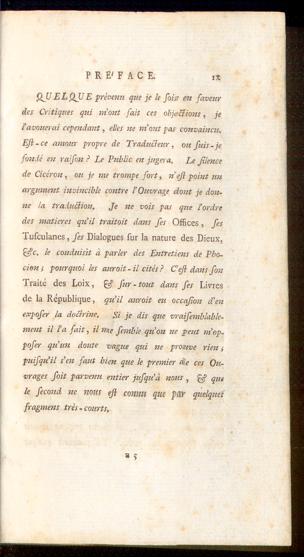 PRÉFACE. ix
QUELQUE prévenu que je le ſois en faveur
des Critiques qui m'ont fait ces objections, je
l'avouerai cependant, elles ne m'ont pas convaincu.
Eſt-ce amour propre de Traducteur, ou ſuis-je
fondé en raiſon? Le Public en jugera. Le ſilence
de Cicéron, ou je me trompe fort, n'eſt point un
argument invincible contre l'Ouvrage dont je don-
ne la traduction. Je ne vois pas que l'ordre
des matieres qu'il traitoit dans ſes Offices, ſes
Tusculanes, ſes Dialogues ſur la nature des Dieux,
&c. le conduiſit à parler des Entretiens de Pho-
cion; pourquoi les auroit-il cités? C'eſt dans ſon
Traité des Loix, & ſur-tout dans ſes Livres
de la République, qu'il auroit eu occaſion d'en
expoſer la doctrine. Si je dis que vraiſemblable-
ment il l'a fait, il me ſemble qu'on ne peut m'op-
poſer qu'un doute vague qui ne prouve rien;
puiſqu'il s'en faut bien que le premier de ces Ou-
vrages ſoit parvenu entier juſqu'à nous, & que
le ſecond ne nous eſt connu que par quelques
fragmens très-courts.
a 5